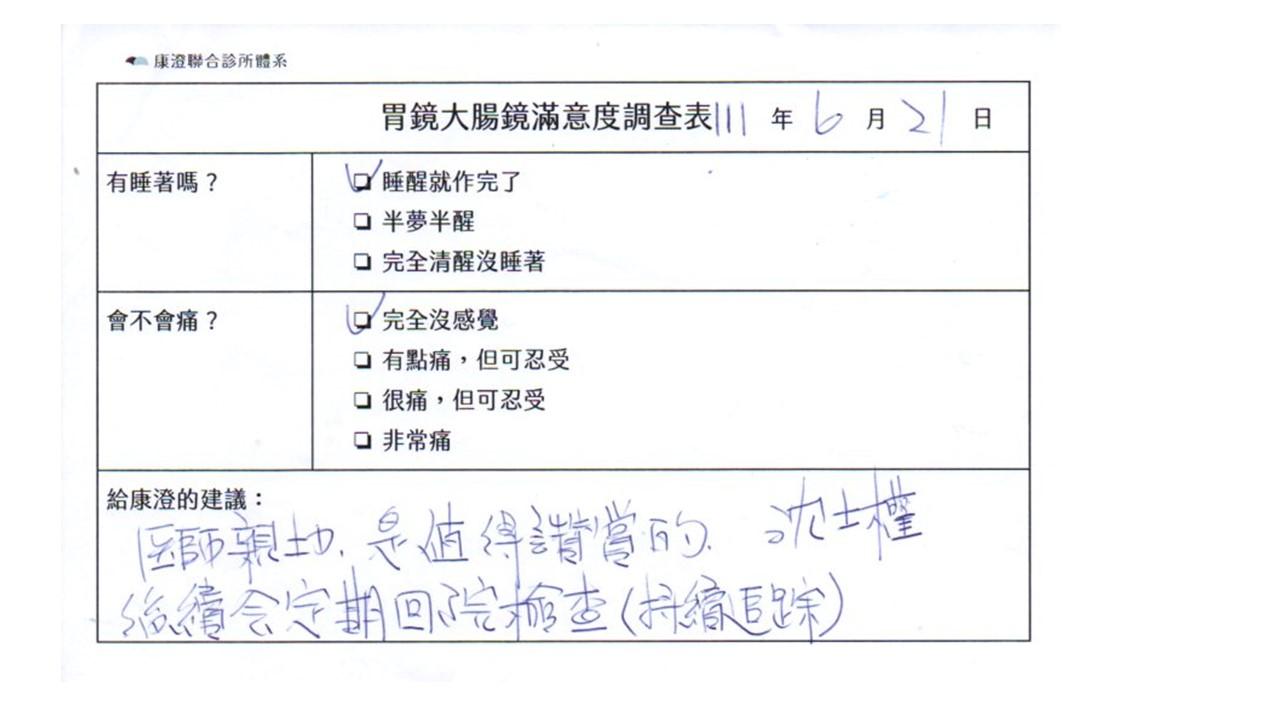 康澄聯合診所體系
胃鏡大腸鏡滿意度調查表 111 年 6 月 21 日
有睡著嗎？
睡醒就作完了
半夢半醒
完全清醒沒睡著
會不會痛？
完全沒感覺
有點痛，但可忍受
很痛，但可忍受
非常痛
給康澄的建議：
医師親切. 是值得讚賞的. 沈士權
後續会定期回院檢查(持續追踪)